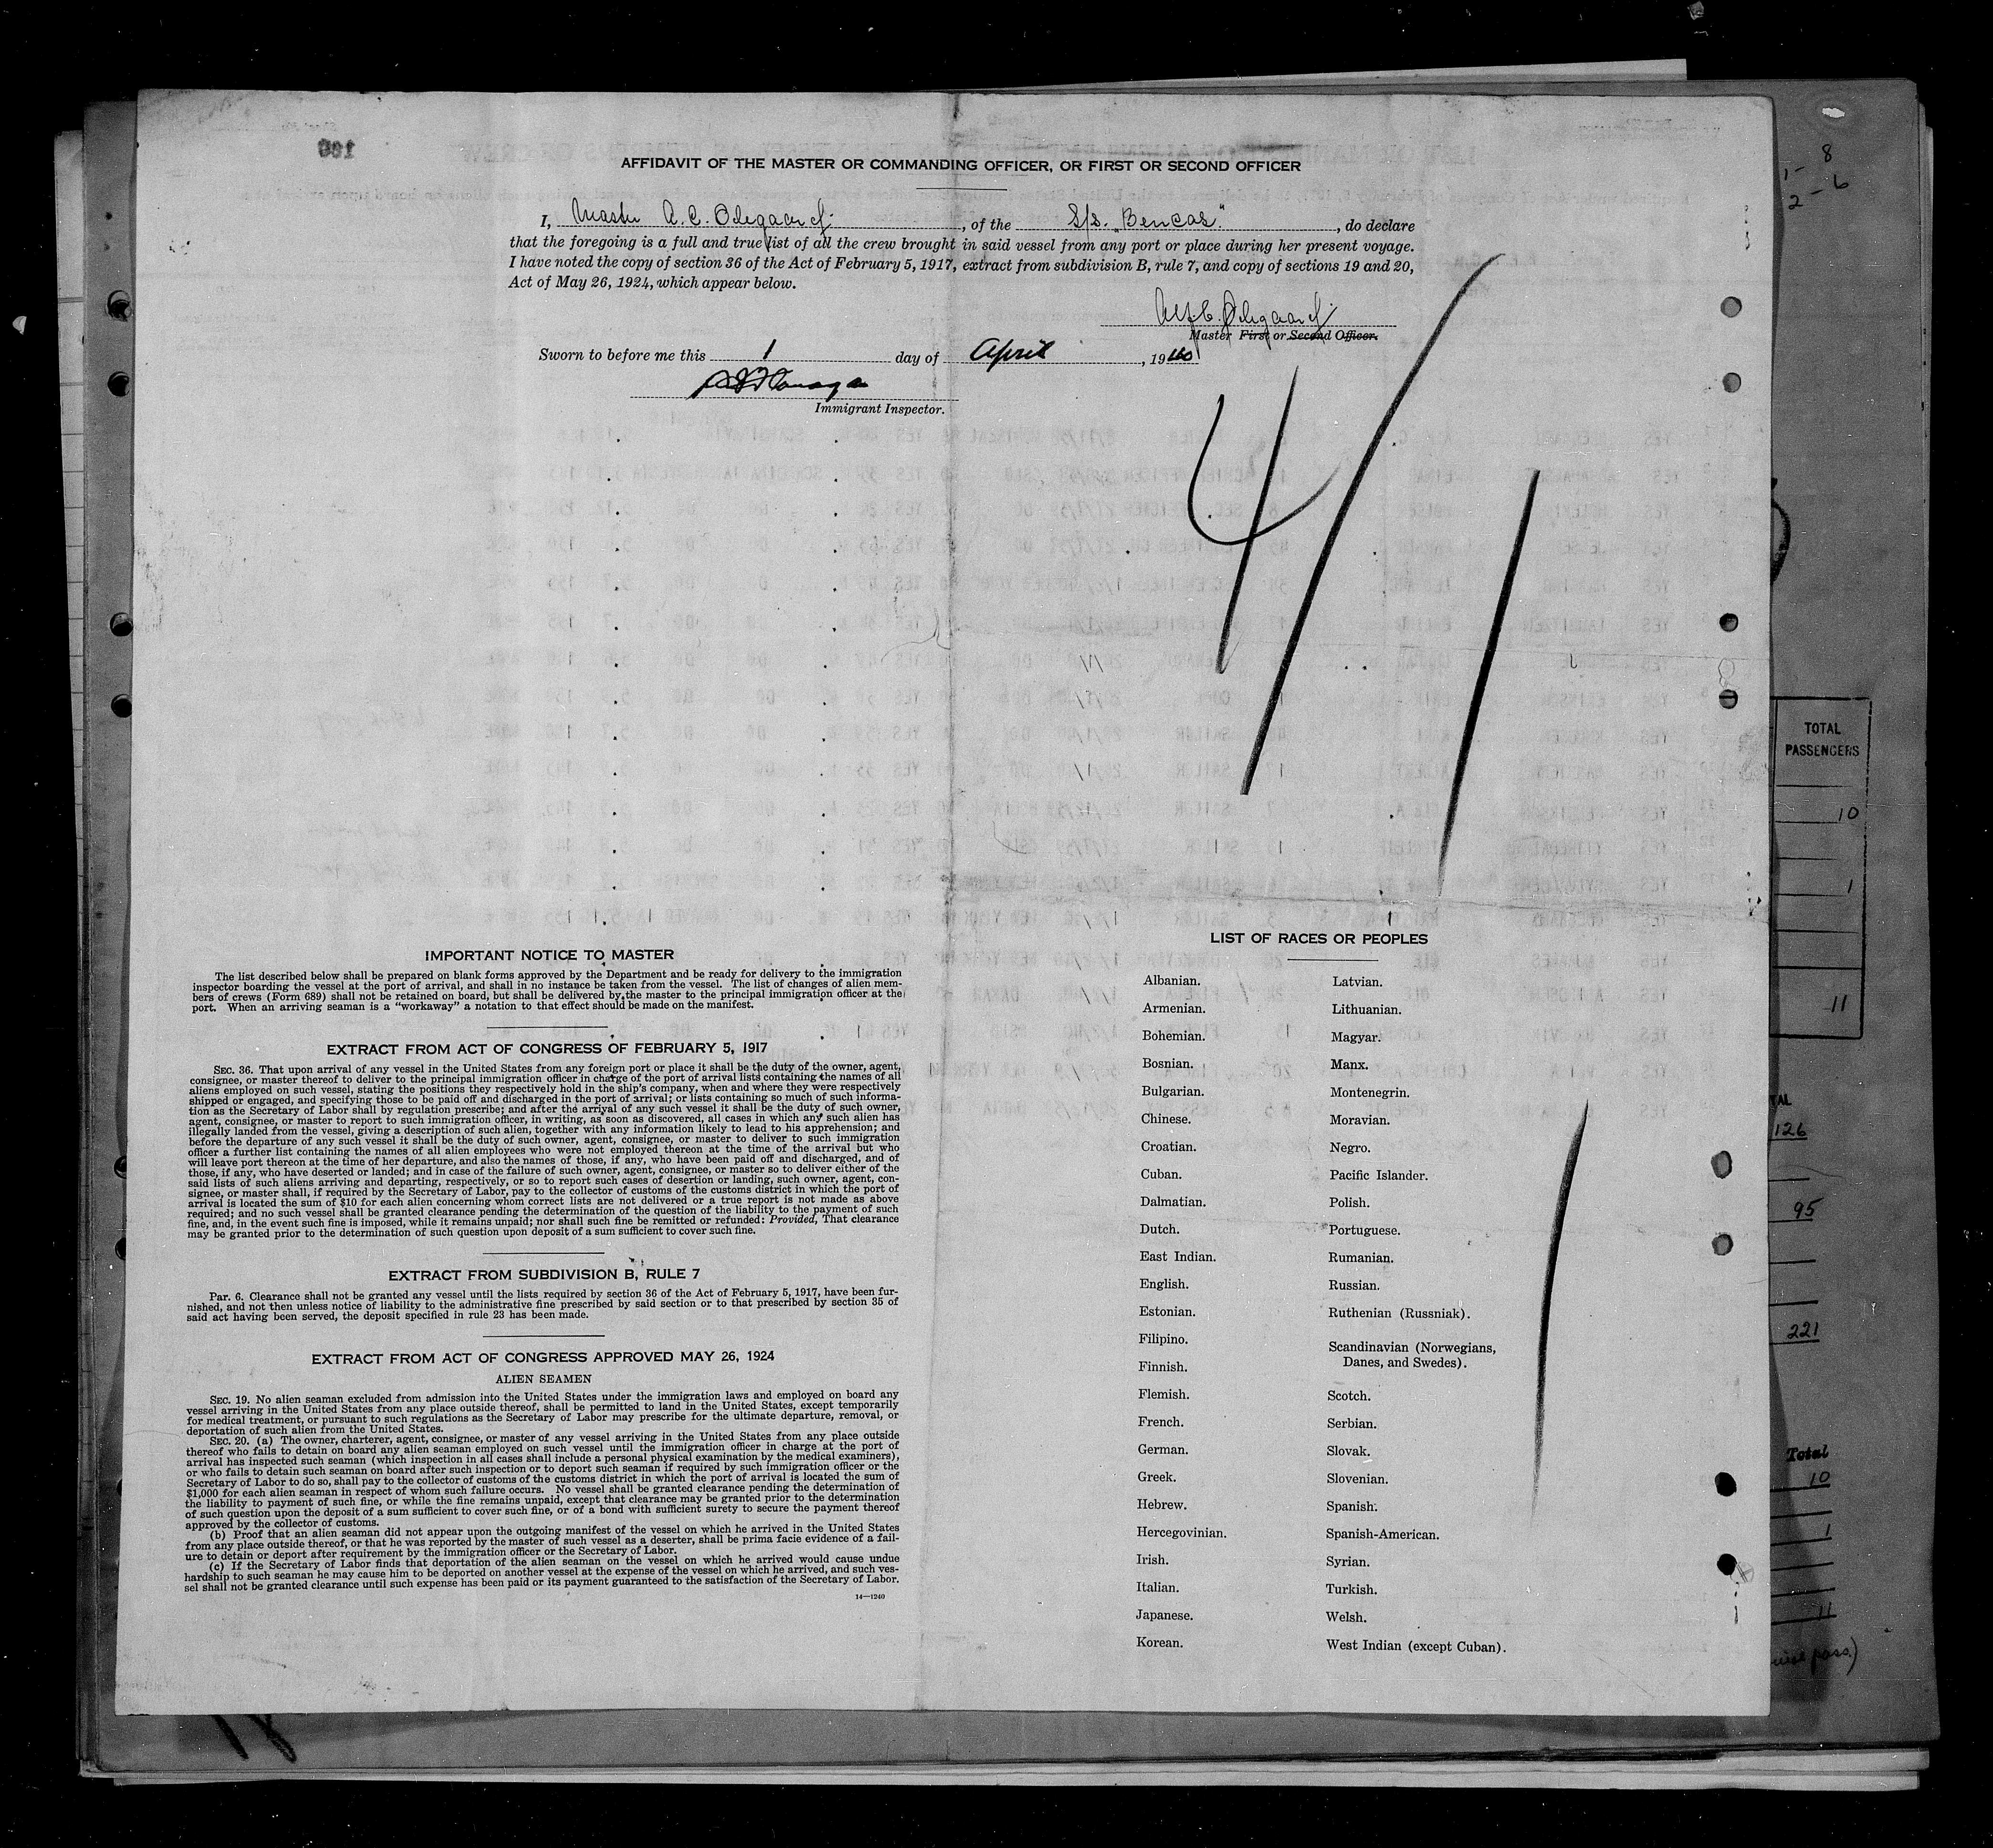 AFFIDAVIT OF THE MASTER OR COMMANDING OFFICER, OR FIRST OR SECOND OFFICER
I, Master A. C. Odegaard, of the S/s. "Bencas", do declare
that the foregoing is a full and true list of all the crew brought in said vessel from any port or place during her present voyage.
I have noted the copy of section 36 of the Act of February 5, 1917, extract from subdivision B, rule 7, and copy of sections 19 and 20,
Act of May 26, 1924, which appear below.
Master First or Second Officer.
Sworn to before me this 1 day of April, 1940
Immigrant Inspector.
4/1
IMPORTANT NOTICE TO MASTER
The list described below shall be prepared on blank forms approved by the Department and be ready for delivery to the immigration
inspector boarding the vessel at the port of arrival, and shall in no instance be taken from the vessel. The list of changes of alien mem-
bers of crews (Form 689) shall not be retained on board, but shall be delivered by the master to the principal immigration officer at the
port. When an arriving seaman is a "workaway" a notation to that effect should be made on the manifest.
EXTRACT FROM ACT OF CONGRESS OF FEBRUARY 5, 1917
SEC. 36. That upon arrival of any vessel in the United States from any foreign port or place it shall be the duty of the owner, agent,
consignee, or master thereof to deliver to the principal immigration officer in charge of the port of arrival lists containing the names of all
aliens employed on such vessel, stating the positions they respectively hold in the ship's company, when and where they were respectively
shipped or engaged, and specifying those to be paid off and discharged in the port of arrival; or lists containing so much of such informa-
tion as the Secretary of Labor shall by regulation prescribe; and after the arrival of any such vessel it shall be the duty of such owner,
agent, consignee, or master to report to such immigration officer, in writing, as soon as discovered, all cases in which any such alien has
illegally landed from the vessel, giving a description of such alien, together with any information likely to lead to his apprehension; and
before the departure of any such vessel it shall be the duty of such owner, agent, consignee, or master to deliver to such immigration
officer a further list containing the names of all alien employees who were not employed thereon at the time of the arrival but who
will leave port thereon at the time of her departure, and also the names of those, if any, who have been paid off and discharged, and of
those, if any, who have deserted or landed; and in case of the failure of such owner, agent, consignee, or master so to deliver either of the
said lists of such aliens arriving and departing, respectively, or so to report such cases of desertion or landing, such owner, agent, con-
signee, or master shall, if required by the Secretary of Labor, pay to the collector of customs of the customs district in which the port of
arrival is located the sum of $10 for each alien concerning whom correct lists are not delivered or a true report is not made as above
required; and no such vessel shall be granted clearance pending the determination of the question of the liability to the payment of such
fine, and, in the event such fine is imposed, while it remains unpaid; nor shall such fine be remitted or refunded: Provided, That clearance
may be granted prior to the determination of such question upon deposit of a sum sufficient to cover such fine.
EXTRACT FROM SUBDIVISION B, RULE 7
Par. 6. Clearance shall not be granted any vessel until the lists required by section 36 of the Act of February 5, 1917, have been fur-
nished, and not then unless notice of liability to the administrative fine prescribed by said section or to that prescribed by section 35 of
said act having been served, the deposit specified in rule 23 has been made.
EXTRACT FROM ACT OF CONGRESS APPROVED MAY 26, 1924
ALIEN SEAMEN
SEC. 19. No alien seaman excluded from admission into the United States under the immigration laws and employed on board any
vessel arriving in the United States from any place outside thereof, shall be permitted to land in the United States, except temporarily
for medical treatment, or pursuant to such regulations as the Secretary of Labor may prescribe for the ultimate departure, removal, or
deportation of such alien from the United States.
SEC. 20. (a) The owner, charterer, agent, consignee, or master of any vessel arriving in the United States from any place outside
thereof who fails to detain on board any alien seaman employed on such vessel until the immigration officer in charge at the port of
arrival has inspected such seaman (which inspection in all cases shall include a personal physical examination by the medical examiners),
or who fails to detain such seaman on board after such inspection or to deport such seaman if required by such immigration officer or the
Secretary of Labor to do so, shall pay to the collector of customs of the customs district in which the port of arrival is located the sum of
$1,000 for each alien seaman in respect of whom such failure occurs. No vessel shall be granted clearance pending the determination of
the liability to payment of such fine, or while the fine remains unpaid, except that clearance may be granted prior to the determination
of such question upon the deposit of a sum sufficient to cover such fine, or of a bond with sufficient surety to secure the payment thereof
approved by the collector of customs.
(b) Proof that an alien seaman did not appear upon the outgoing manifest of the vessel on which he arrived in the United States
from any place outside thereof, or that he was reported by the master of such vessel as a deserter, shall be prima facie evidence of a fail-
ure to detain or deport after requirement by the immigration officer or the Secretary of Labor.
(c) If the Secretary of Labor finds that deportation of the alien seaman on the vessel on which he arrived would cause undue
hardship to such seaman he may cause him to be deported on another vessel at the expense of the vessel on which he arrived, and such ves-
sel shall not be granted clearance until such expense has been paid or its payment guaranteed to the satisfaction of the Secretary of Labor.
14—1240
LIST OF RACES OR PEOPLES
Albanian.
Armenian.
Bohemian.
Bosnian.
Bulgarian.
Chinese.
Croatian.
Cuban.
Dalmatian.
Dutch.
East Indian.
English.
Estonian.
Filipino.
Finnish.
Flemish.
French.
German.
Greek.
Hebrew.
Hercegovinian.
Irish.
Italian.
Japanese.
Korean.
Latvian.
Lithuanian.
Magyar.
Manx.
Montenegrin.
Moravian.
Negro.
Pacific Islander.
Polish.
Portuguese.
Rumanian.
Russian.
Ruthenian (Russniak).
Scandinavian (Norwegians,
Danes, and Swedes).
Scotch.
Serbian.
Slovak.
Slovenian.
Spanish.
Spanish-American.
Syrian.
Turkish.
Welsh.
West Indian (except Cuban).
TOTAL
PASSENGERS
10
1
11
126
95
221
Total
10
1
11